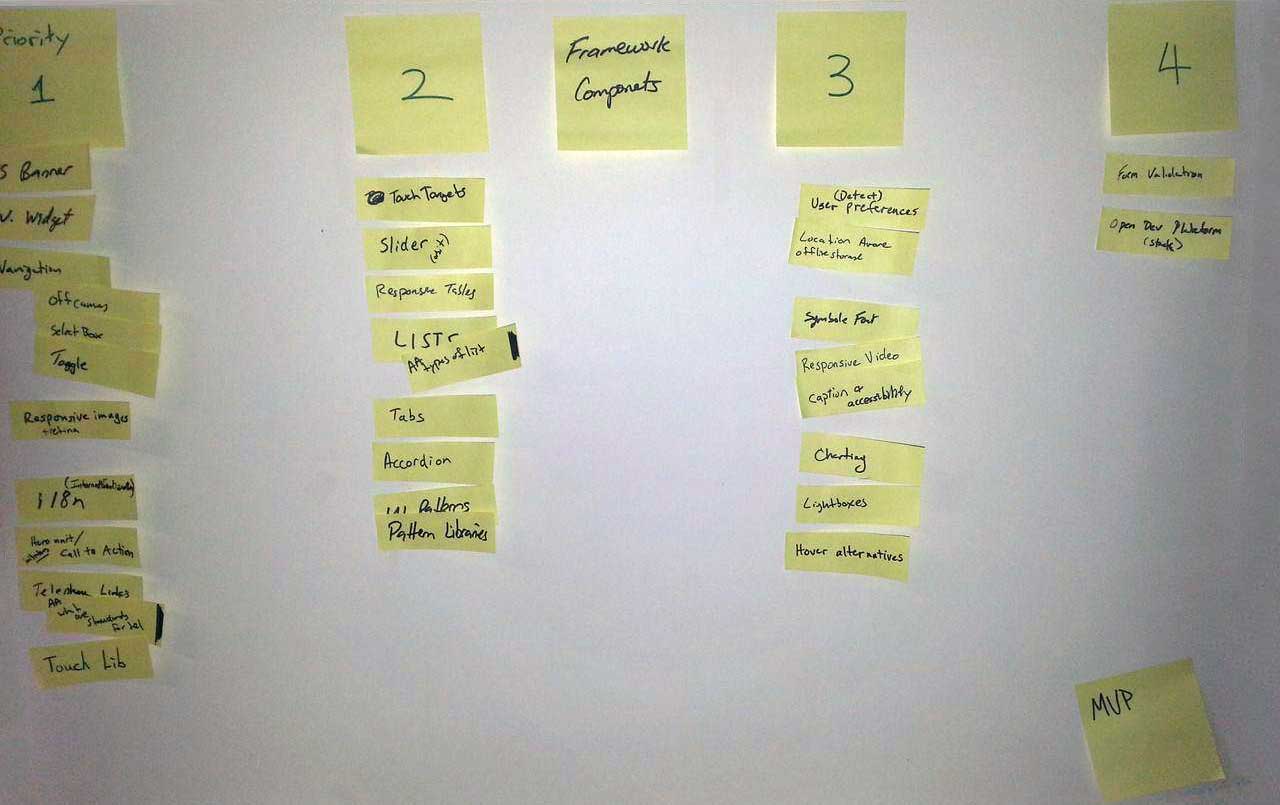 Priority
1
S Banner
N. Widget
Navigation
Off canvas
Select Box
Toggle
Responsive images
+retina
(Internationally)
i18n
Hero unit/
Call to Action
Links
API
what are
standards
for tel
Touch Lib
2
Touch Targets
Slider
Responsive Tables
LISTs
types of list
Tabs
Accordion
UI Patterns
Pattern Libraries
Framework
Componets
3
(Detect)
User preferences
Location Aware
offline storage
Symbole Font
Responsive Video
Caption &
accessibility
Charting
Lightboxes
Hover alternatives
4
Form Validation
Open Dev Platform
(stack)
MVP